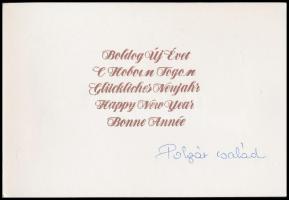 Boldog Új Évet
С Новым Годом
Glückliches Neujahr
Happy New Year
Bonne Année
Polgár család